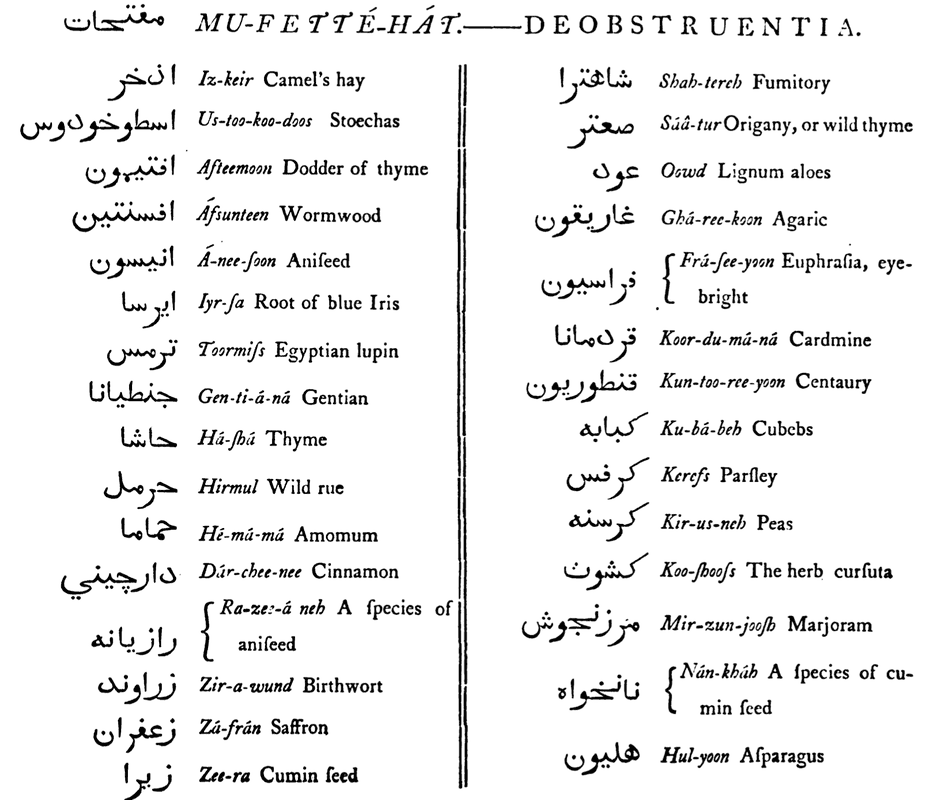 مفتحات MU-FETTÉ-HÁT.——DEOBSTRUENTIA.
اذخر Iz-keir Camel's hay
اسطوخودوس Us-too-koo-doos Stoechas
افتيمون Afteemoon Dodder of thyme
افسنتين Áfsunteen Wormwood
انيسون Á-nee-ſoon Aniſeed
ايرسا Iyr-ſa Root of blue Iris
ترمس Toormiſs Egyptian lupin
جنطيانا Gen-ti-á-ná Gentian
حاشا Há-ſhá Thyme
حرمل Hirmul Wild rue
حماما Hé-má-má Amomum
دارچيني Dár-chee-nee Cinnamon
رازيانه { Ra-zee-á neh A ſpecies of
aniſeed
زراوند Zir-a-wund Birthwort
زعفران Zá-frán Saffron
زيرا Zee-ra Cumin ſeed
شاهترا Shah-tereh Fumitory
صعتر Súâ-tur Origany, or wild thyme
عود Oowd Lignum aloes
غاريقون Ghá-ree-koon Agaric
فراسيون { Frá-ſee-yoon Euphraſia, eye-
bright
قردمانا Koor-du-má-ná Cardmine
قنطوريون Kun-too-ree-yoon Centaury
كبابه Ku-bá-beh Cubebs
كرفس Kerefs Parſley
كرسنه Kir-us-neh Peas
كشوث Koo-ſhooſs The herb curſuta
مرزنجوش Mir-zun-jooſh Marjoram
نانخواه { Nán-kháh A ſpecies of cu-
min ſeed
هليون Hul-yoon Aſparagus